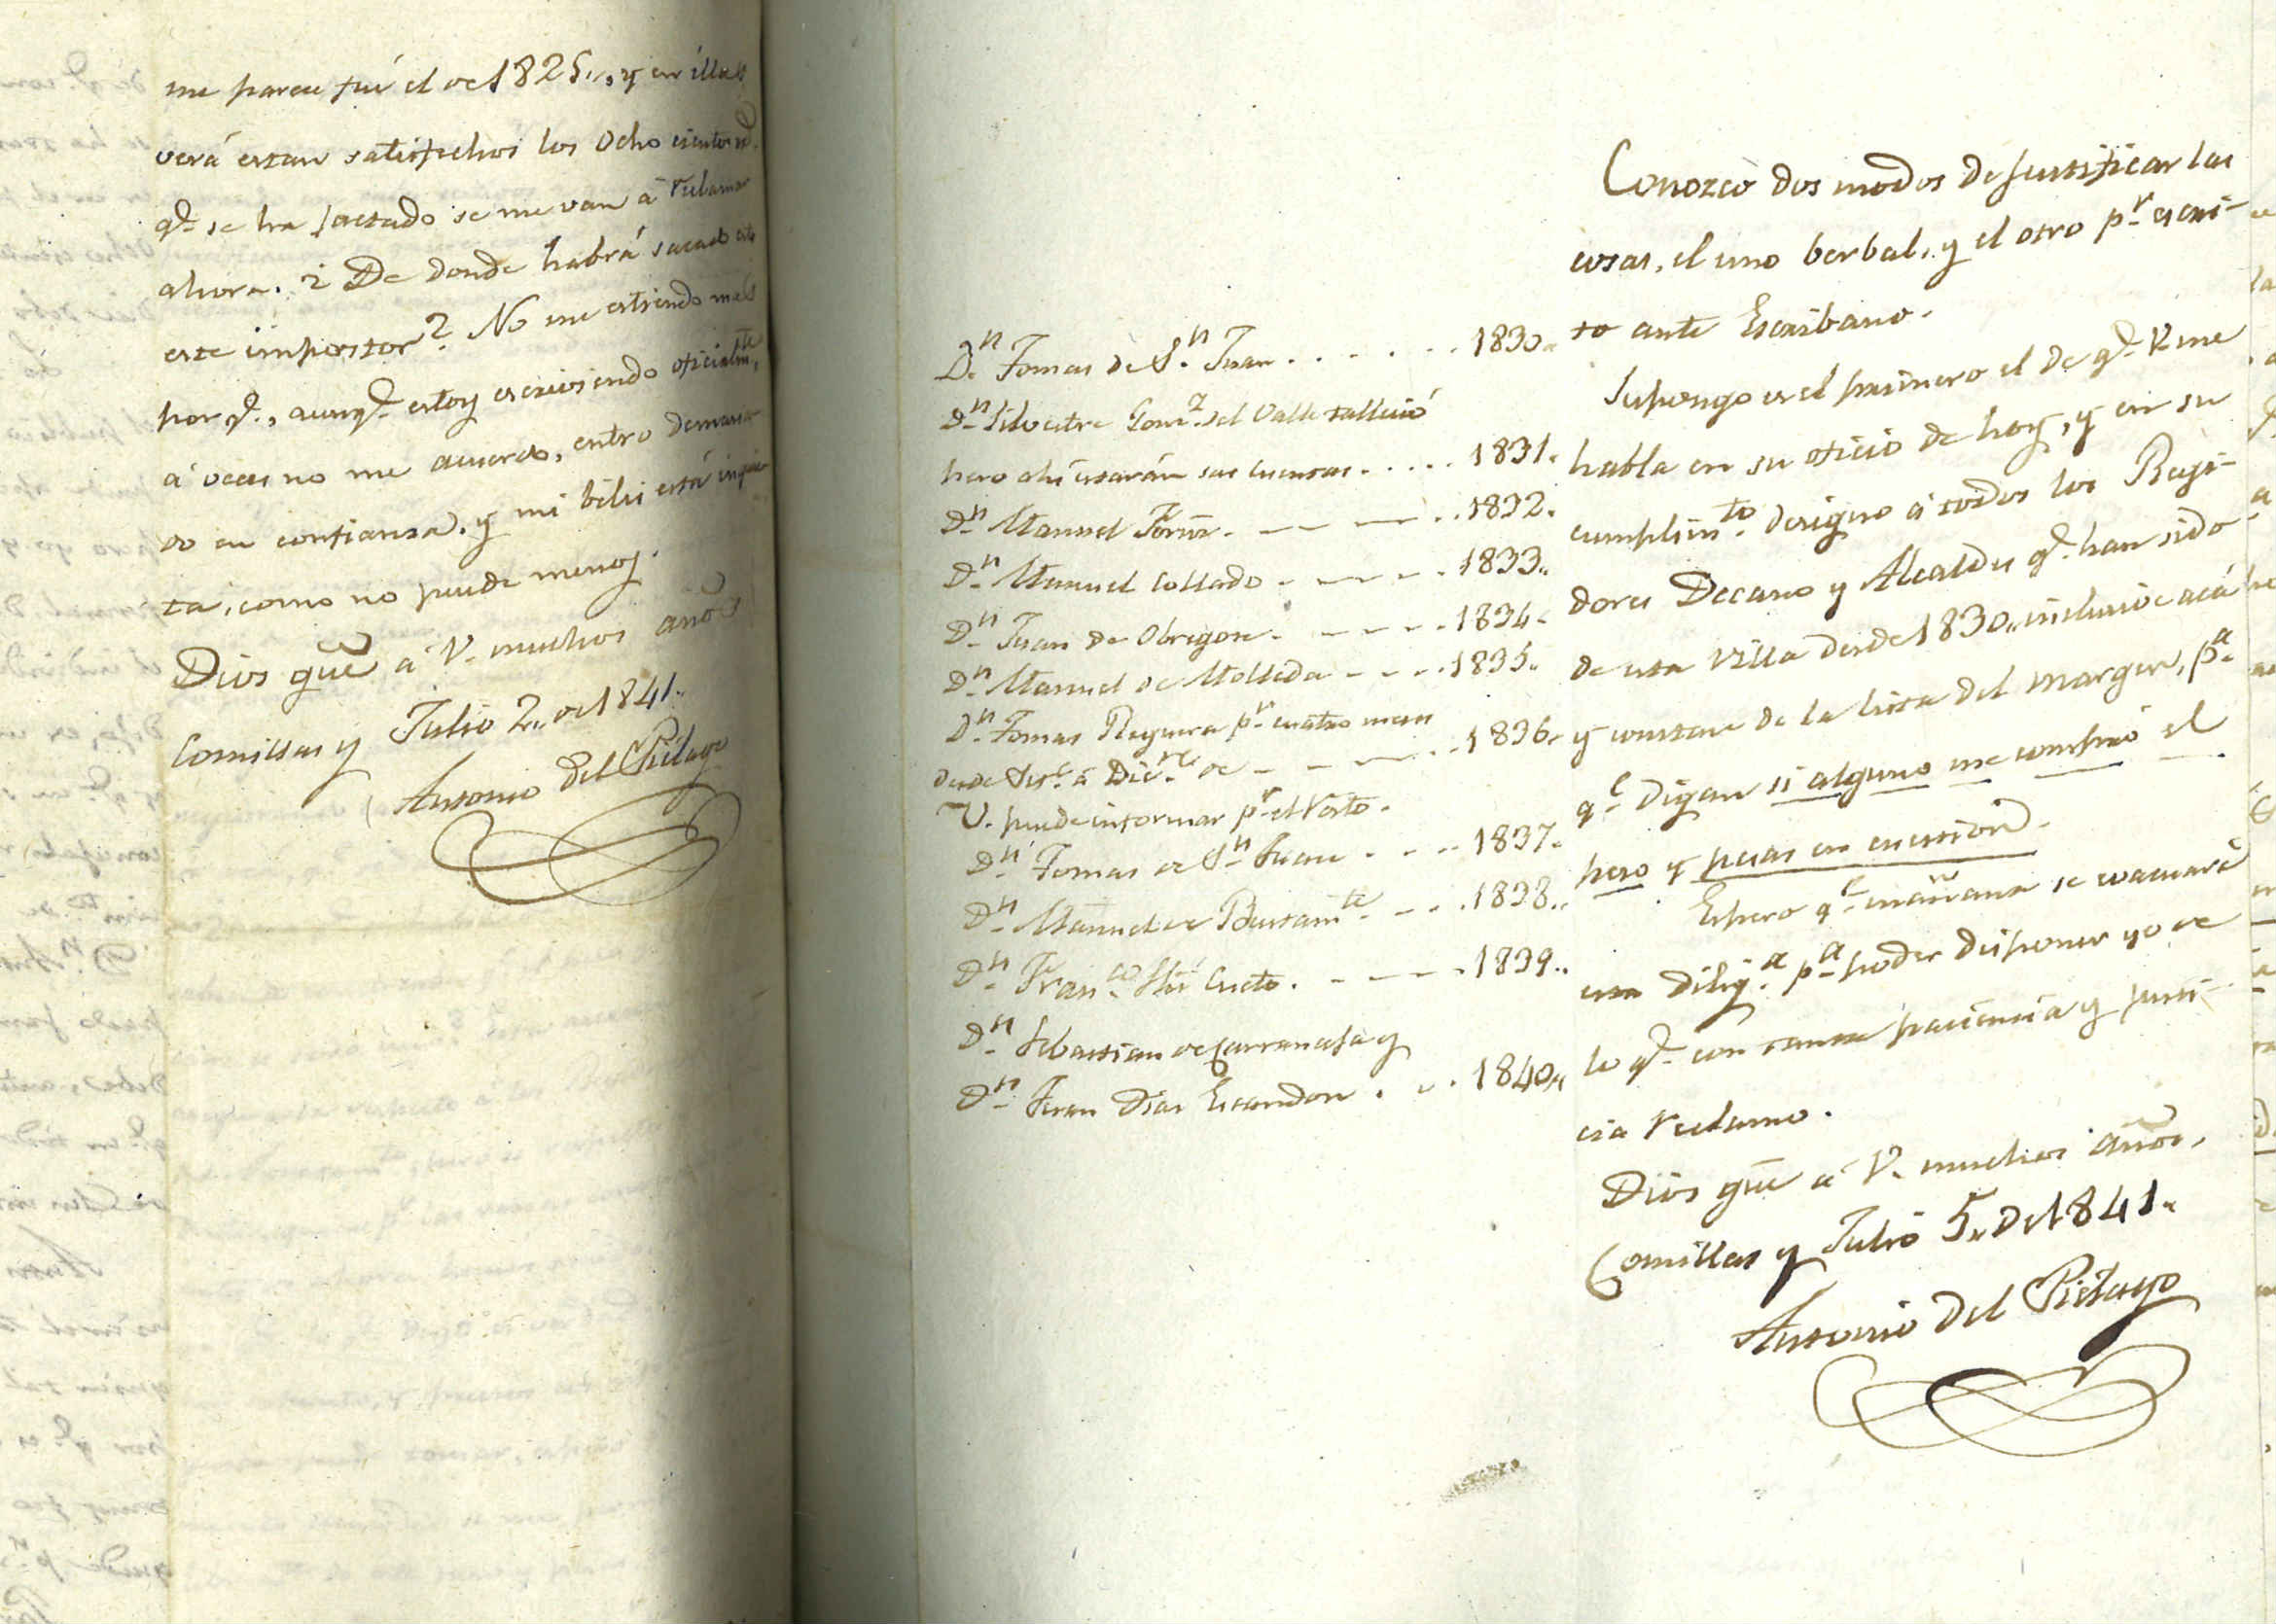 me parece fué el de 1825,, y en illas
verá estan satisfechos los Ocho cientos rs.
q.e se ha jactado se me van á reclamar
ahora. ¿ De donde habrá sacado esto
este impostor? No me estiendo mas
por q.e, aunq.e estoy escriviendo oficialm.te,
á veces no me acuerdo, entro demasia-
do en confianza, y mi bilis está inquie-
ta, como no puede menos.
Dios gue á V. muchos años
Comillas y Julio 2,, de 1841,,
Antonio del Piélago
D.n Tomas de S.n Juan . . . . . . 1830,,
D.n Silvestre Gom.z del Valle falleció
pero ahi estarán sus cuentas . . . . . 1831,,
D.n Manuel . . 1832,,
D.n Manuel Collado - - - - 1833,,
D.n Juan de Obregon - - - - 1834,,
D.n Manuel de Molleda - - - - 1835,,
D.n Tomas Reguera p.r cuatro meses
desde Set.e á Dic.re de - - - 1836,,
V. puede informar p.r el resto.
D.n Tomas de S.n Juan . . . . 1837,,
D.n Manuel de Bustam.te - . . 1838,,
D.n Fran.co Cueto . - - - 1839,,
D.n Sebastian de Carranceja y
D.n Juan Dias Escandon . . . 1840,,
Conozco dos modos de justificar las
cosas, el uno berbal, y el otro p.r escri-
to ante Escribano.
Supongo es el primero el de q.e V. me
habla en su oficio de hoy, y en su
cumplim.to designo á todos los Regi-
dores Decano y Alcaldes q.e han sido
de esta Villa desde 1830,, inclusive acá
y constan de la lista del margen, p.a
q.e digan si alguno me compró el
peso y pesas en cuestion.
Espero q.e mañana se evacuará
esta dilig.a p.a poder disponer yo de
lo q.e con tanta paciencia y justi-
cia reclamo.
Dios gue á V. muchos años,
Comillas y Julio 5,, de 1841,,
Antonio del Piélago